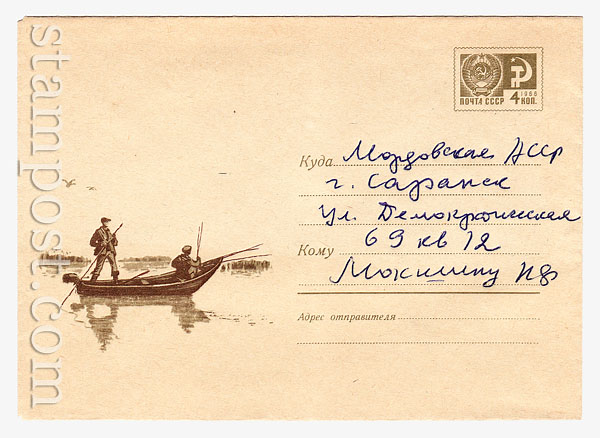 stampost.com
1966
ПОЧТА СССР 4 КОП.
Куда Мордовская АССР
г. Саранск
ул. Демократическая
Кому 69 кв 12
Мокшину
Адрес отправителя